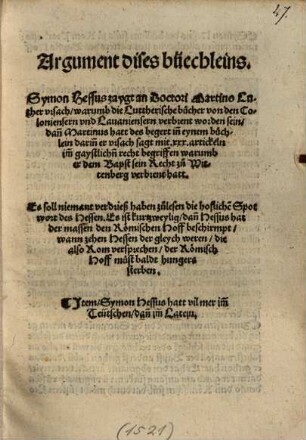 47.
Argument dises büechleins.
Symon Hessus zaygt an Doctori Martino Lu
ther vrsach/ warumb die Lutherische bücher von den Co
loniensern vnd Lauaniensern verbrent worden sein/
dañ Martinus hatt des begert iñ eynem büch-
lein darīn er vrsach sagt mit .xxx. artickeln
iñ gaystlichñ recht begriffen warumb
er dem Bapst sein Recht zů Wit-
tenberg verbrent hatt.
Es soll niemant verdrieß haben zůlesen die hoflichē Spot
wort des Hessen. Es ist kurtzweylig/ dañ Hessus hat
der massen den Römischen Hoff beschirmpt/
wann zehen Hessen der gleych weren/ die
also Rom versprechen/ der Römisch
Hoff můst baldt hungers
sterben.
Item/ Symon Hessus hatt vil mer iñ
Teütschen/ dañ iñ Latein.
(1521)